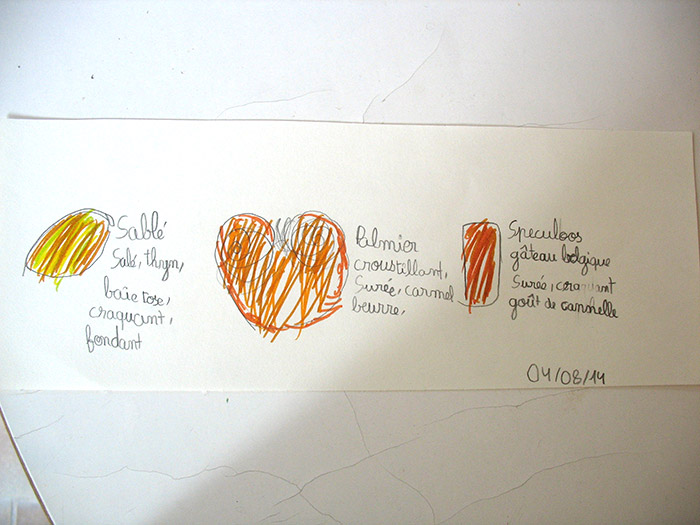 Sablé
Salé, thym,
baie rose,
craquant,
fondant
Palmier
croustillant,
Surée, carmel
beurre,
Speculoos
gâteau belgique
Surée, craquant
goût de cannelle
04/08/14